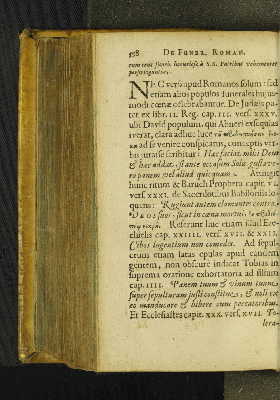 398 DE FUNER. ROMAN.
rum cons funeb. luxuriose à S.S. Patribus vehementer
perstringuntur.
NEC verò apud Romanos solum: sed
etiam alios populos funerales hujus-
modi cœnæ celebrabantur. De Judæis pa-
tet ex libr. II. Reg. cap. III. vers. XXXV.
ubi David populum, qui Abneri exsequias
iverat, clara adhuc luce
ad se venire conspicatus, conceptis ver-
bis jurasse scribitur: Hæc faciat mihi Deus
& hæc addat, si ante occasum Solis gustave-
ro panem vel aliud quicquam. Attingit
hunc ritum & Baruch Propheta capit. VI.
vers. XXXI. de Sacerdotibus Babiloniis lo-
quens: Rugiunt autem clamantes contra
DEOS suos, sicut in cœna mortui,
Referunt huc etiam illud Eze-
chielis cap. XXIIII. vers. XVII. & XXII.
Cibos lugentium non comedes. Ad sepul-
crum etiam latas epulas apud eamdem
gentem, non obscurè indicat Tobias in
suprema oratione exhortatoria ad filium
cap. IIII. Panem tuum & vinum tuum
super sepulturam justi constitue, & noli ex
eo manducare & bibere cum peccatoribus.
Et Ecclesiastes capit. XXX. vers. XVIII. To-
lera-